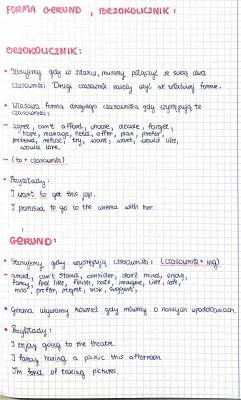 FORMA GERUND, BEZOKOLICZNIK:
BEZOKOLICZNIK:
• Stosujemy gdy w zdaniu, musimy połączyć ze sobą dwa
czasowniki. Drugi czasownik należy użyć we właściwej formie.
• Właściwa forma drugiego czasownika gdy występują te
czasowniki:
- agree, can't afford, choose, decide, forget,
hope, manage, need, offer, plan, prefer,
pretend, refuse, try, want, want, would like,
would love.
- (to + czasownik)
• Przykłady:
I want to get this job.
I promised to go to the cinema with her.
GERUND:
• Stosujemy gdy występują czasowniki: (czasownik + ing)
- avoid, can't stand, consider, don't mind, enjoy,
fancy, feel like, finish, hate, imagine, like, love,
miss, prefer, regret, risk, suggest,
• Gerund używamy również gdy mówimy o naszych upodobaniach.
• Przykłady:
I enjoy going to the theatre.
I fancy having a picnic this afternoon.
I'm fond of taking pictures.